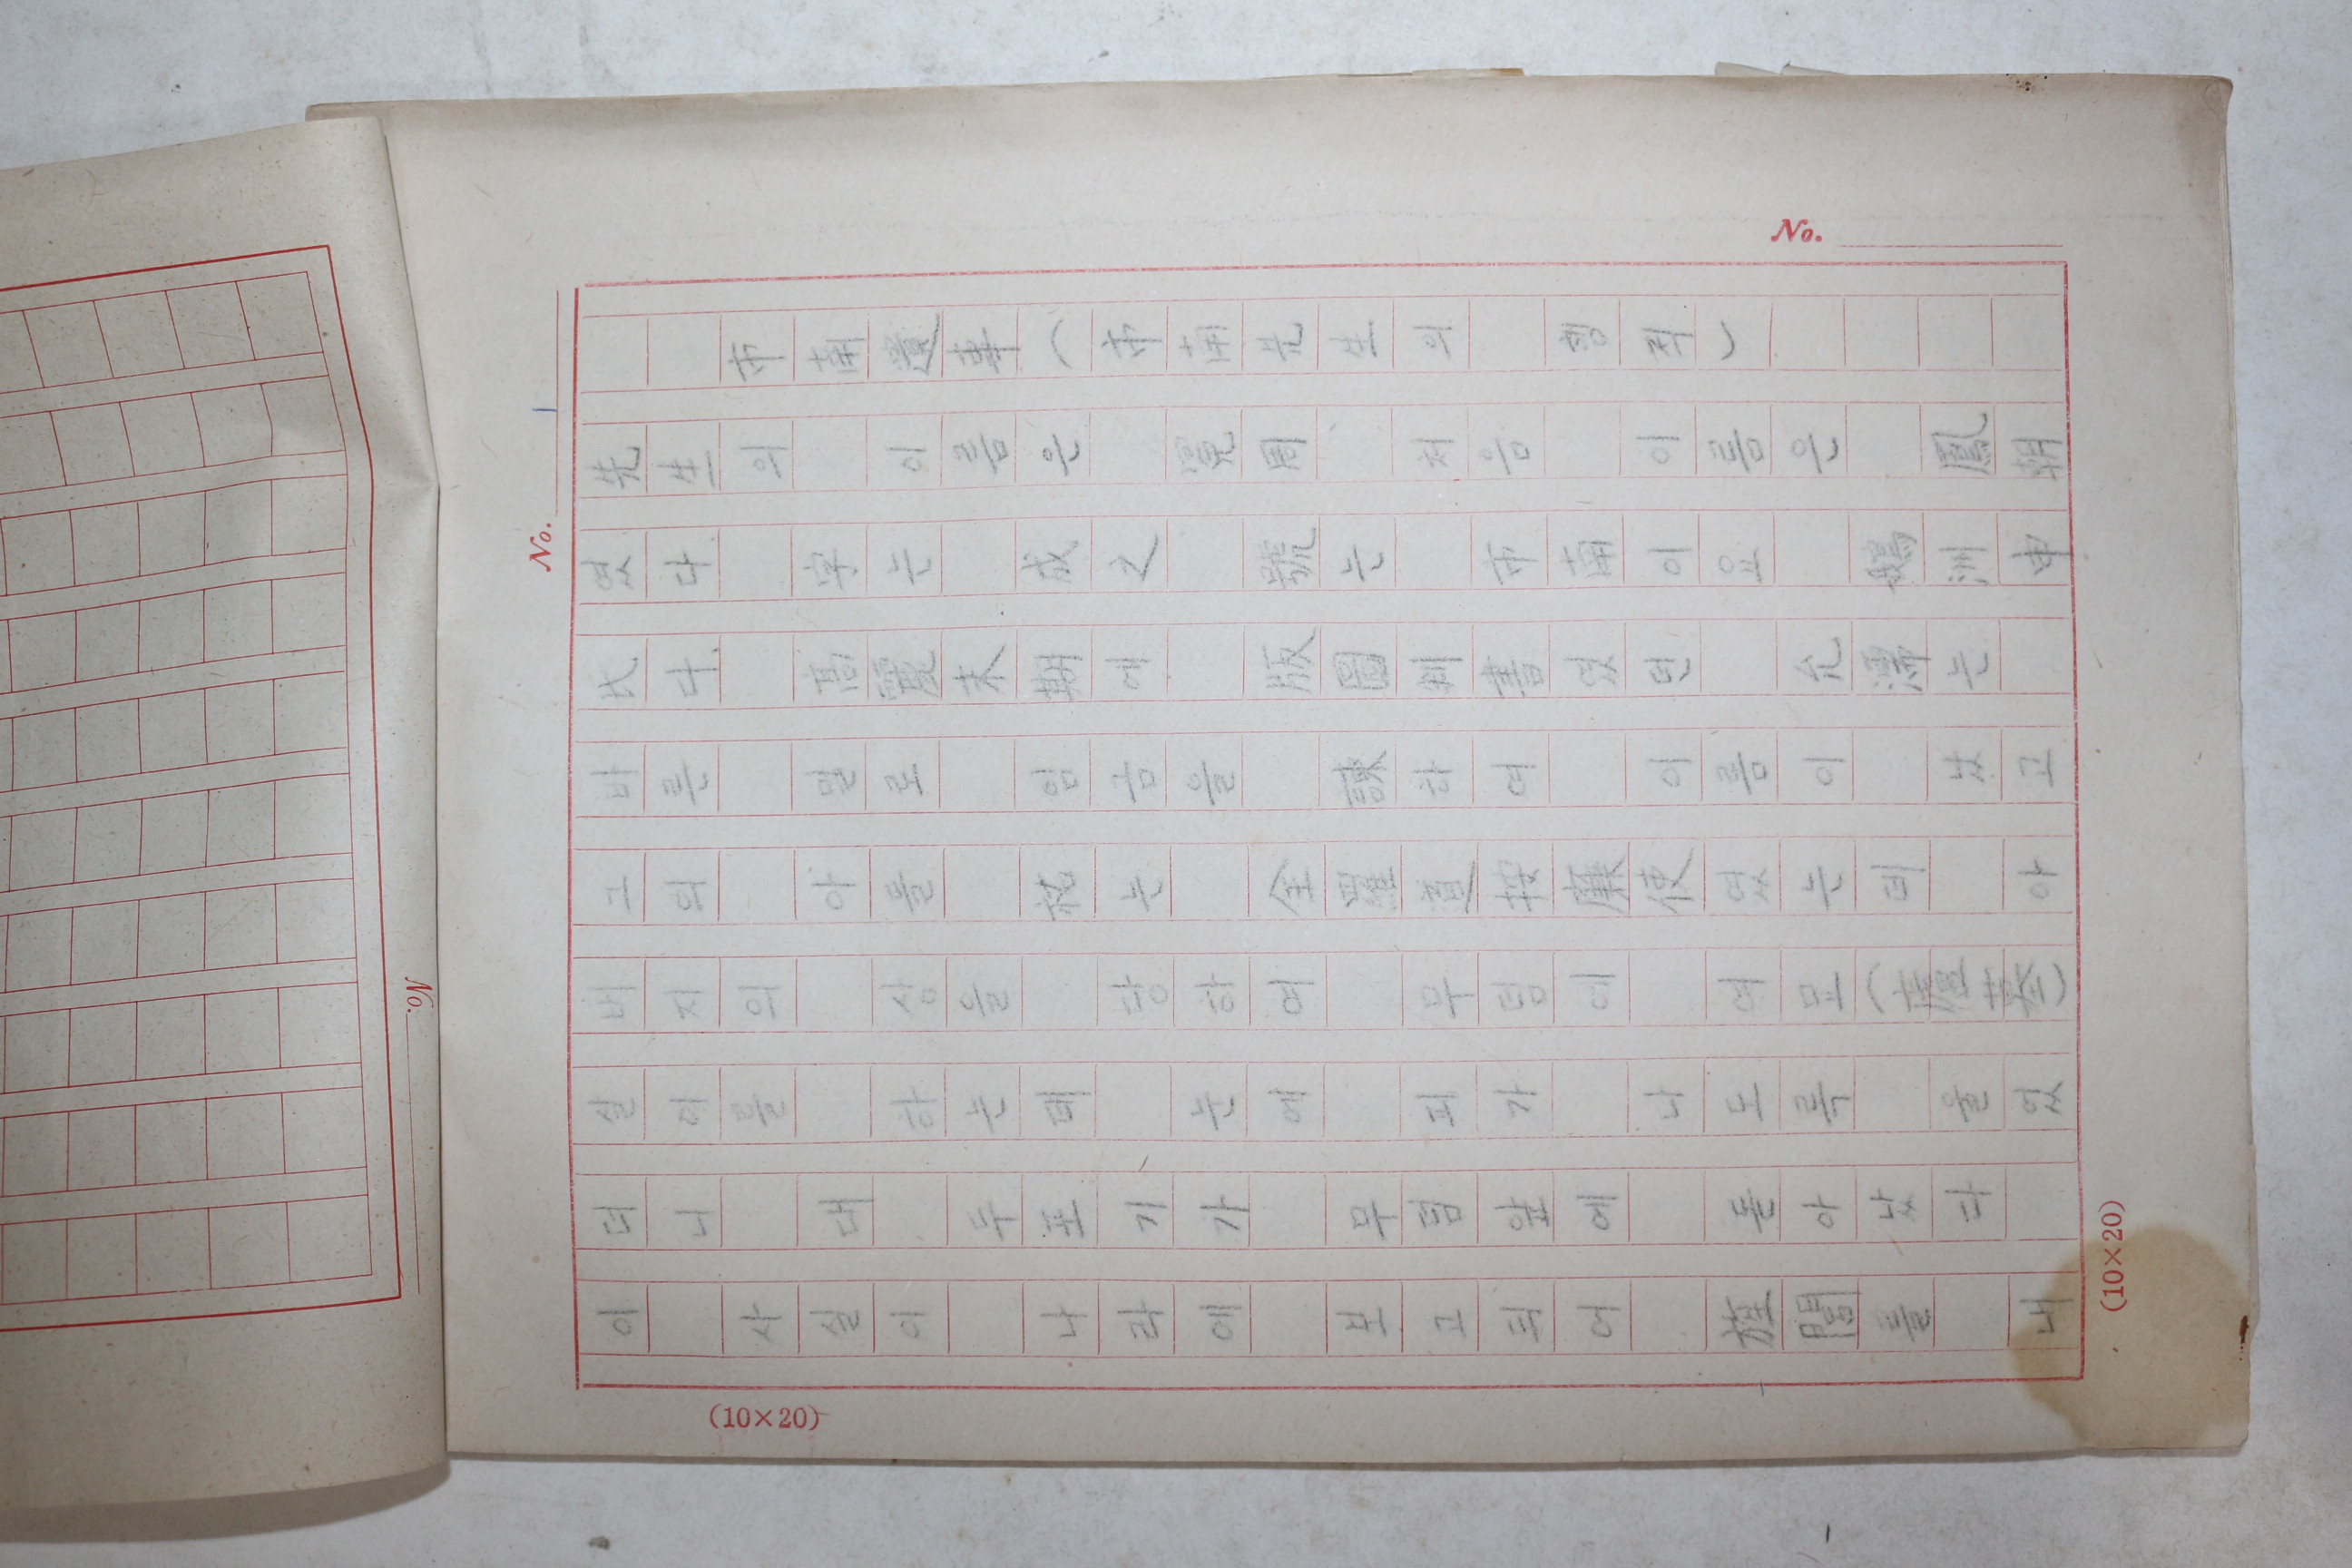 市南遺事(市南先生의 행적)
先生의 이름은 처음 이름은 鳳朝
였다 字는 成之 號는 市南이요 鵝洲申
氏다. 高麗末期에 版圖判書였던 允濡는
바른 말로 임금을 諫하여 이름이 났고
그의 아들 祐는 全羅道按廉使였는데 아
버지의 상을 당하여 무덤의 여묘
살이를 하는데 눈에 피가 나도록 울었
더니 대 두포기가 무덤앞에 돋아났다
이 사실이 나라에 보고되어 旌閭를 내
No.
No.
No.
(10×20)
(10×20)